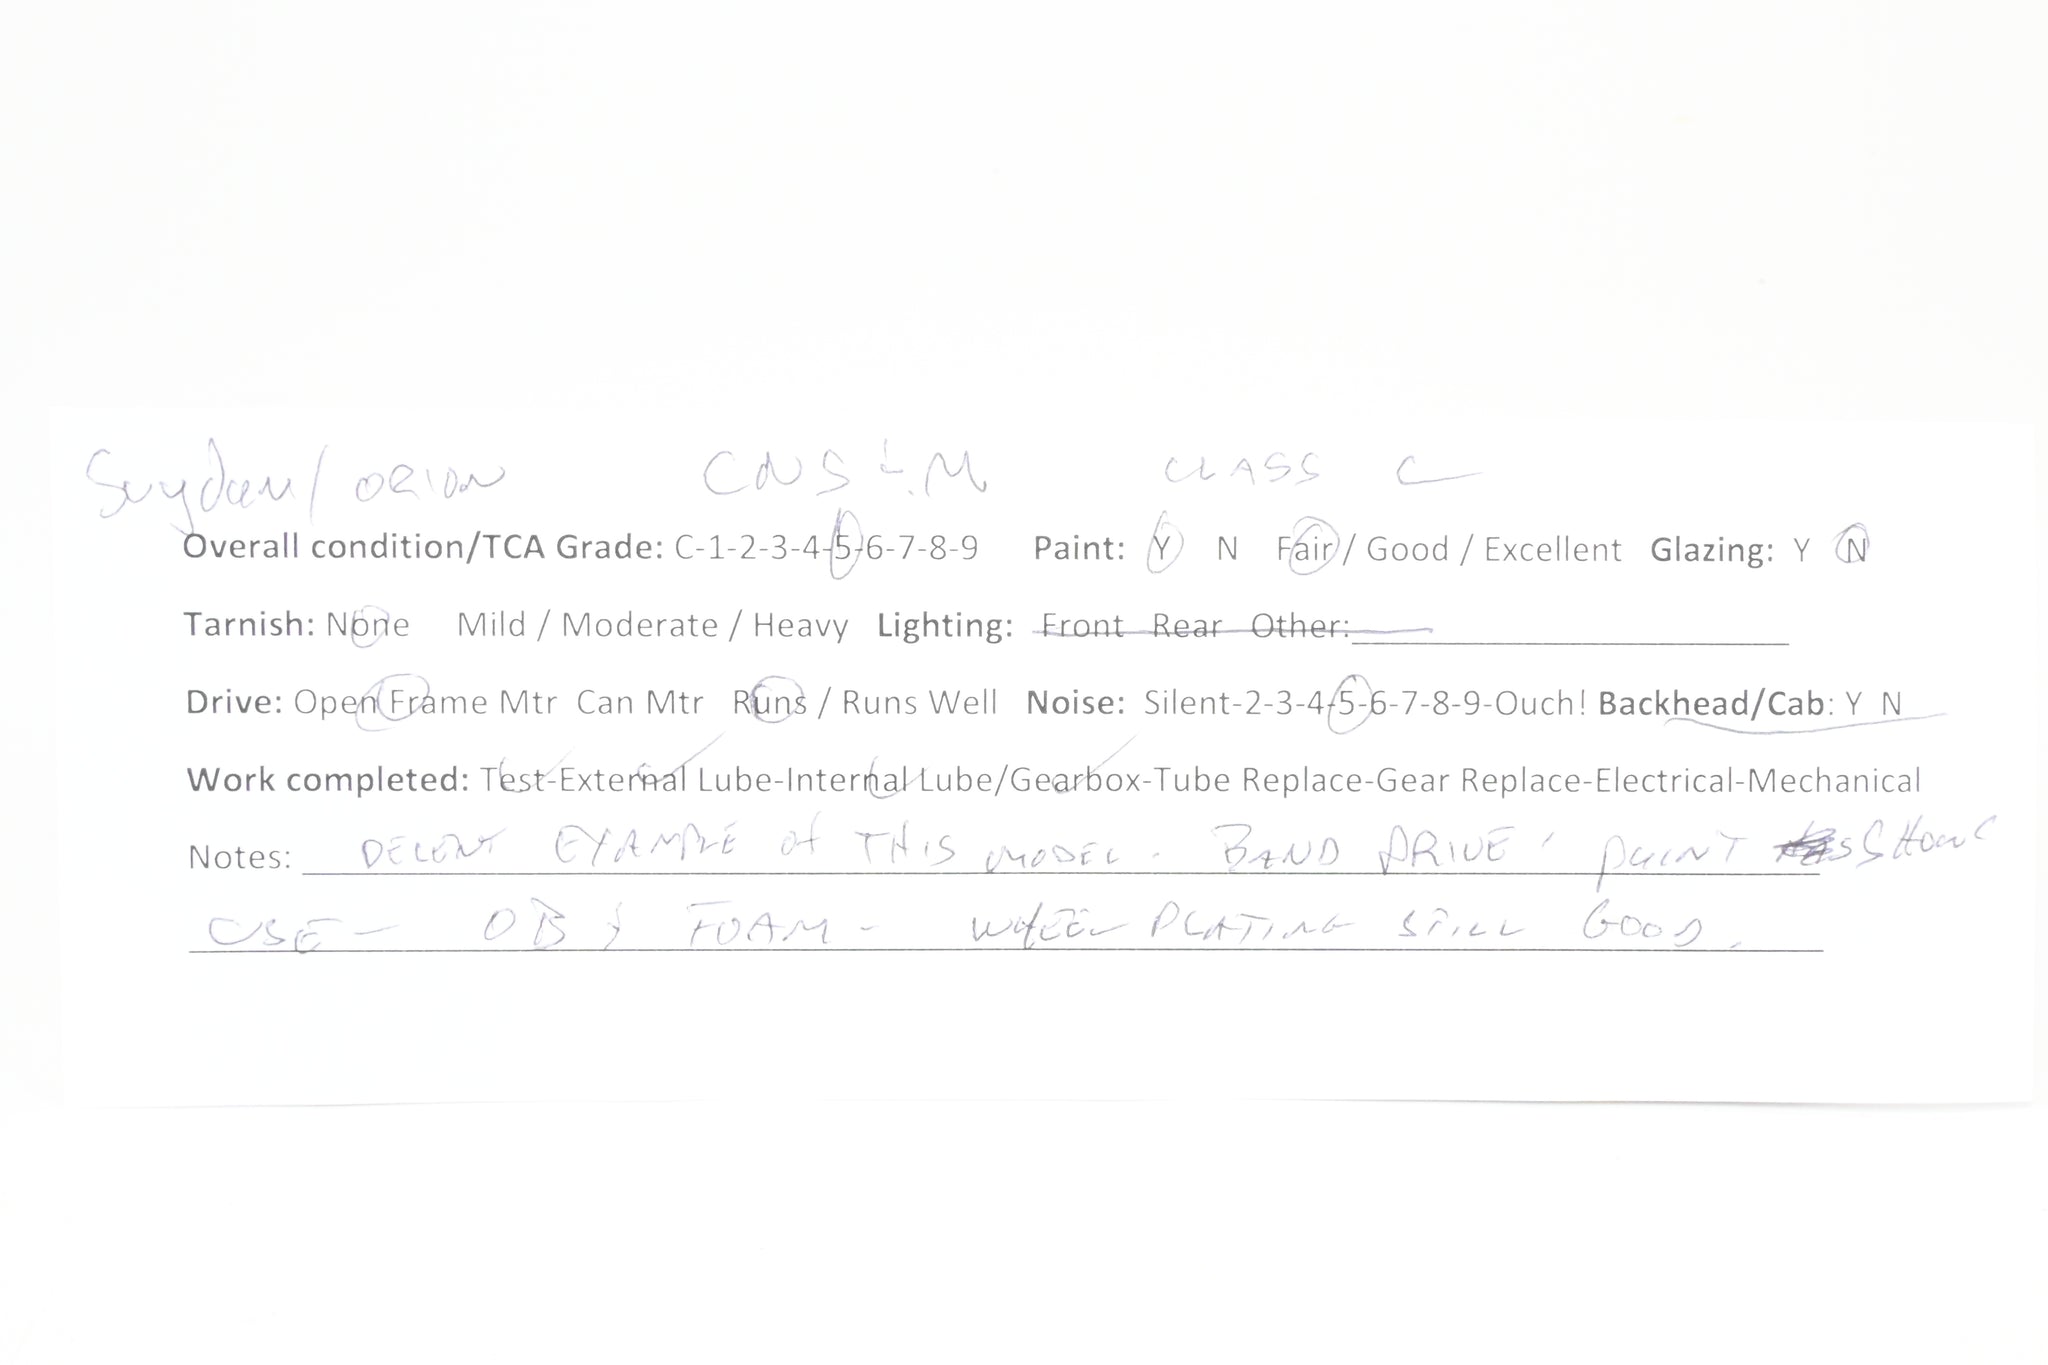 Suydam/ORION CNS&M CLASS C
Overall condition/TCA Grade: C-1-2-3-4-5-6-7-8-9 Paint: Y N Fair / Good / Excellent Glazing: Y N
Tarnish: None Mild / Moderate / Heavy Lighting: Front Rear Other:
Drive: Open Frame Mtr Can Mtr Runs / Runs Well Noise: Silent-2-3-4-5-6-7-8-9-Ouch! Backhead/Cab: Y N
Work completed: Test-External Lube-Internal Lube/Gearbox-Tube Replace-Gear Replace-Electrical-Mechanical
Notes: DECENT EXAMPLE of THIS MODEL. BAND DRIVE. PAINT SHOWS
USE - OB & FOAM - WHEEL PLATING STILL GOOD.